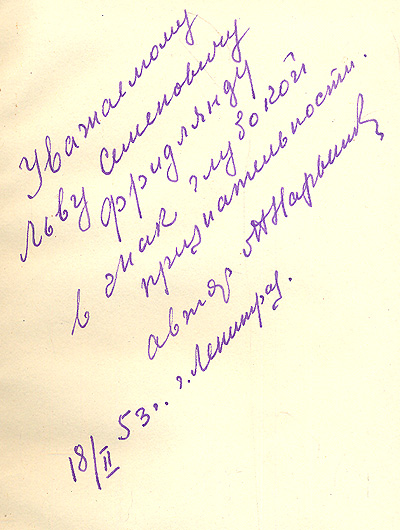 Уважаемому
Льву Семеновичу
Фридлянду
в знак глубокой
признательности.
автор АНарышкин
18/II 53г. г. Ленинград.